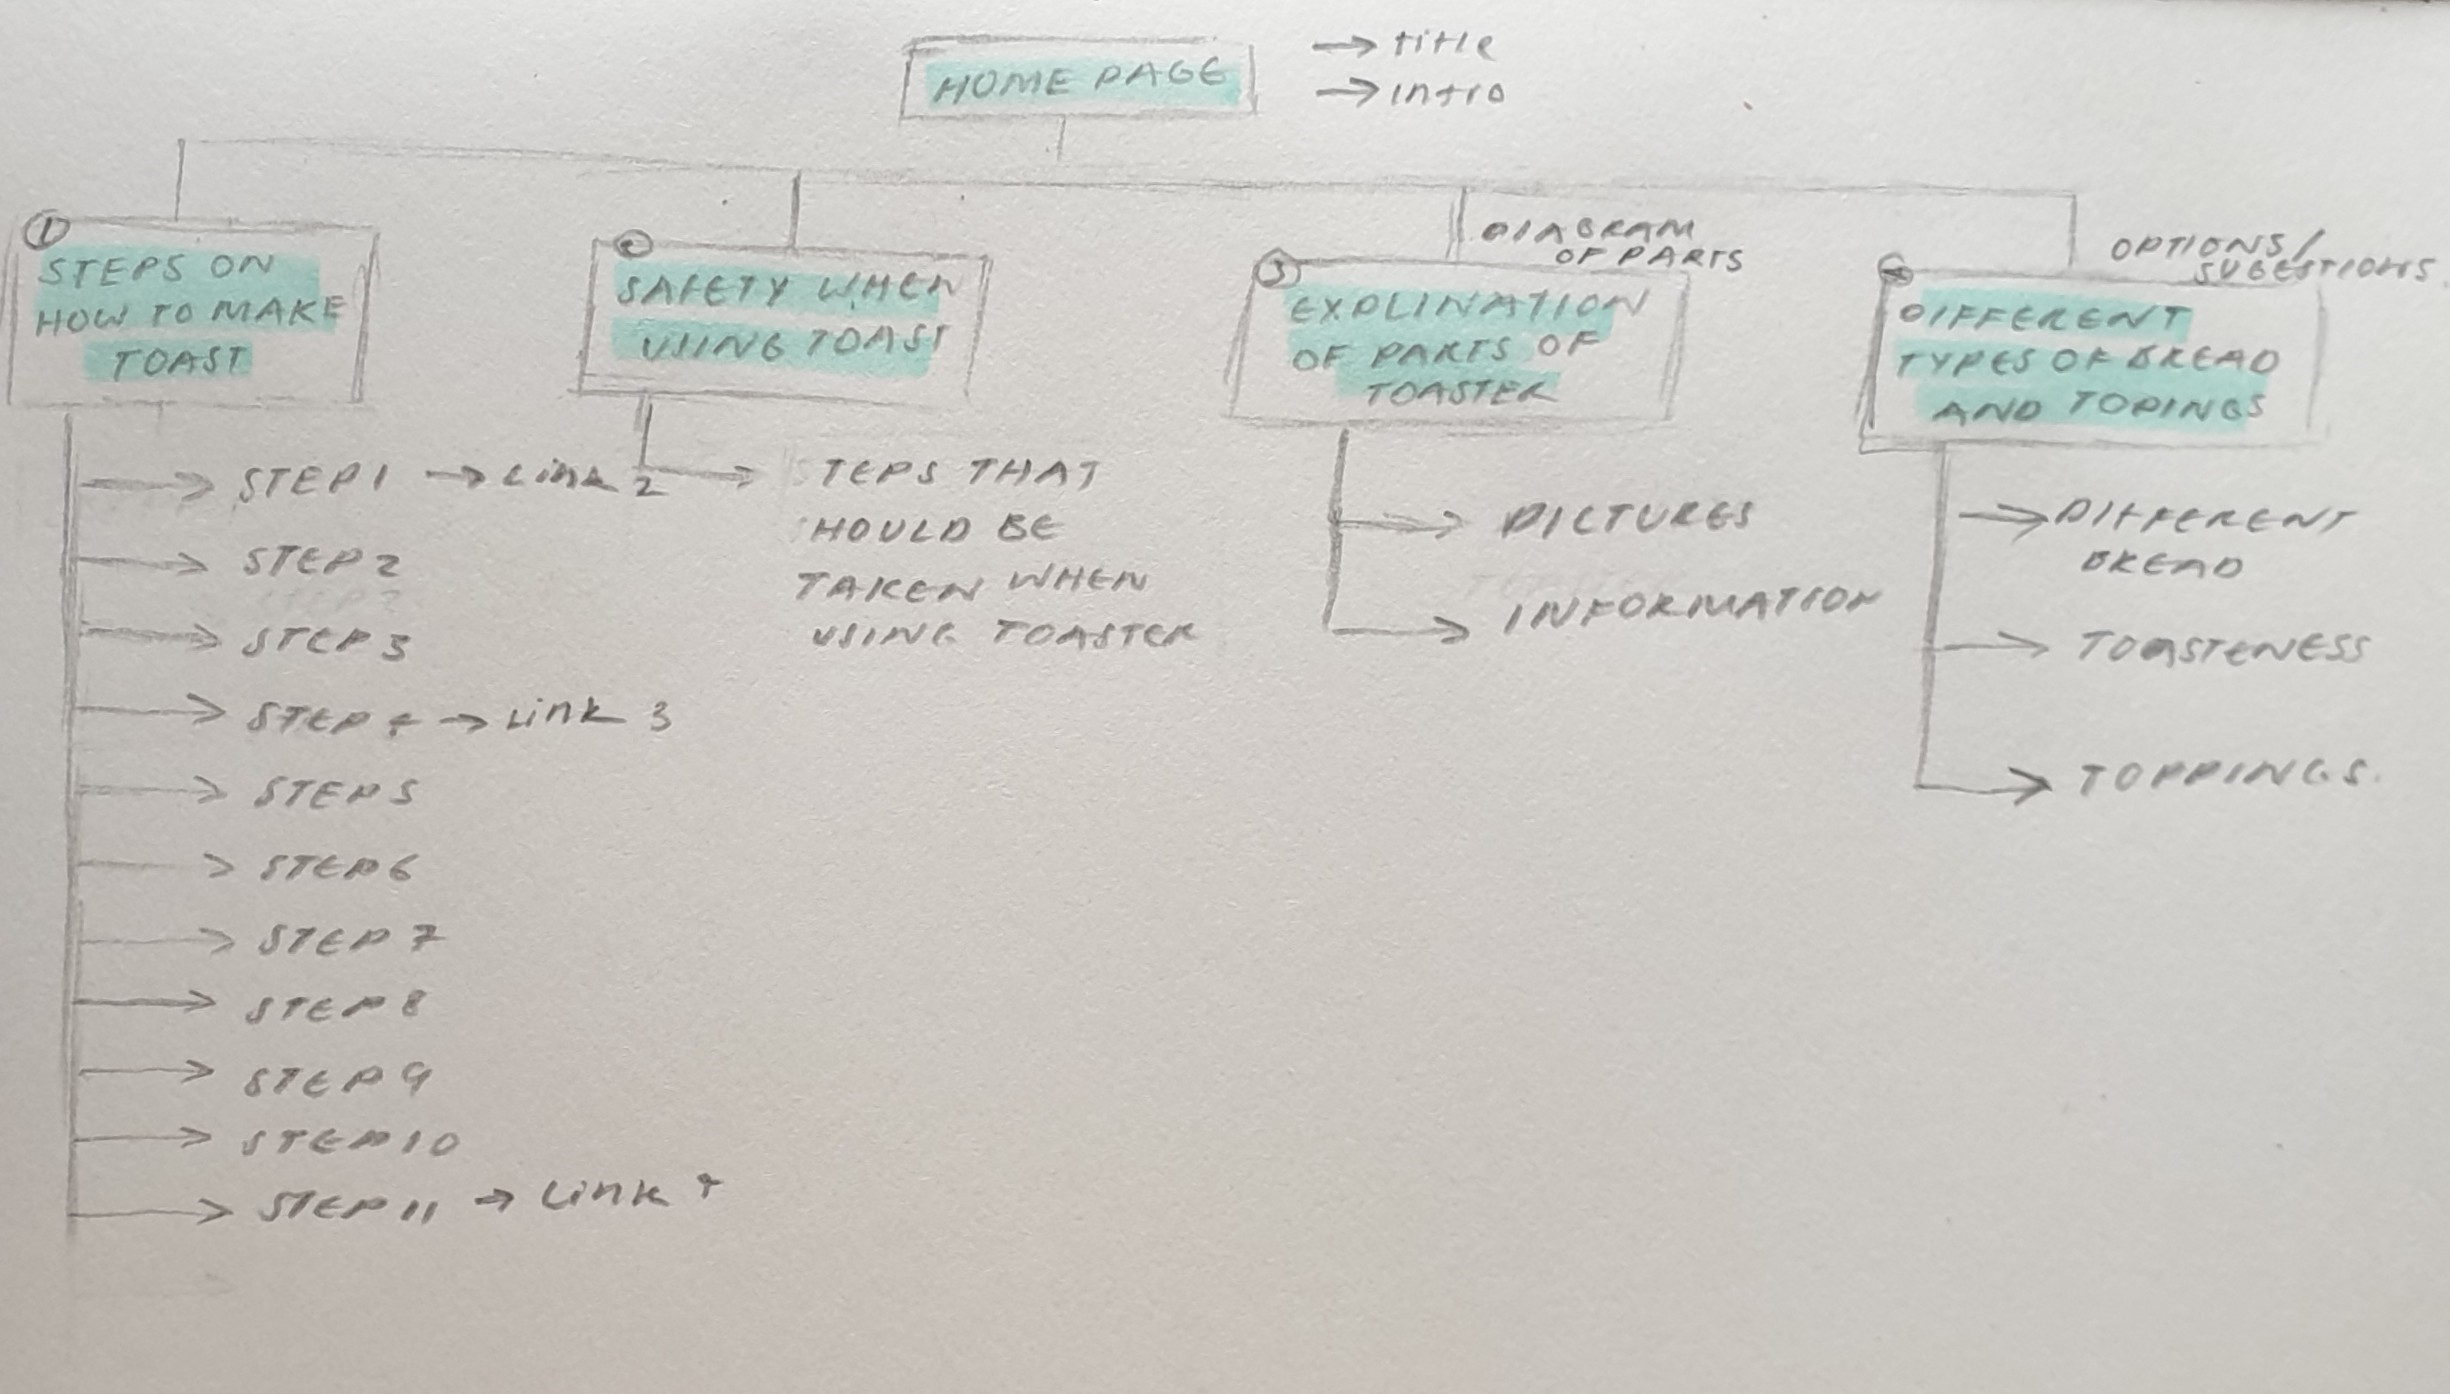 HOME PAGE
→ title
→ intro
①
STEPS ON
HOW TO MAKE
TOAST
→ STEP 1 → Link 2
→ STEP 2
→ STEP 3
→ STEP 4 → Link 3
→ STEP 5
→ STEP 6
→ STEP 7
→ STEP 8
→ STEP 9
→ STEP 10
→ STEP 11 → Link 4
②
SAFETY WHEN
USING TOAST
→ STEPS THAT
SHOULD BE
TAKEN WHEN
USING TOASTER
DIAGRAM
OF PARTS
③
EXPLINATION
OF PARTS OF
TOASTER
→ PICTURES
→ INFORMATION
OPTIONS/
SUGESTIONS.
④
DIFFERENT
TYPES OF BREAD
AND TOPINGS
→ DIFFERENT
BREAD
→ TOASTENESS
→ TOPPINGS.